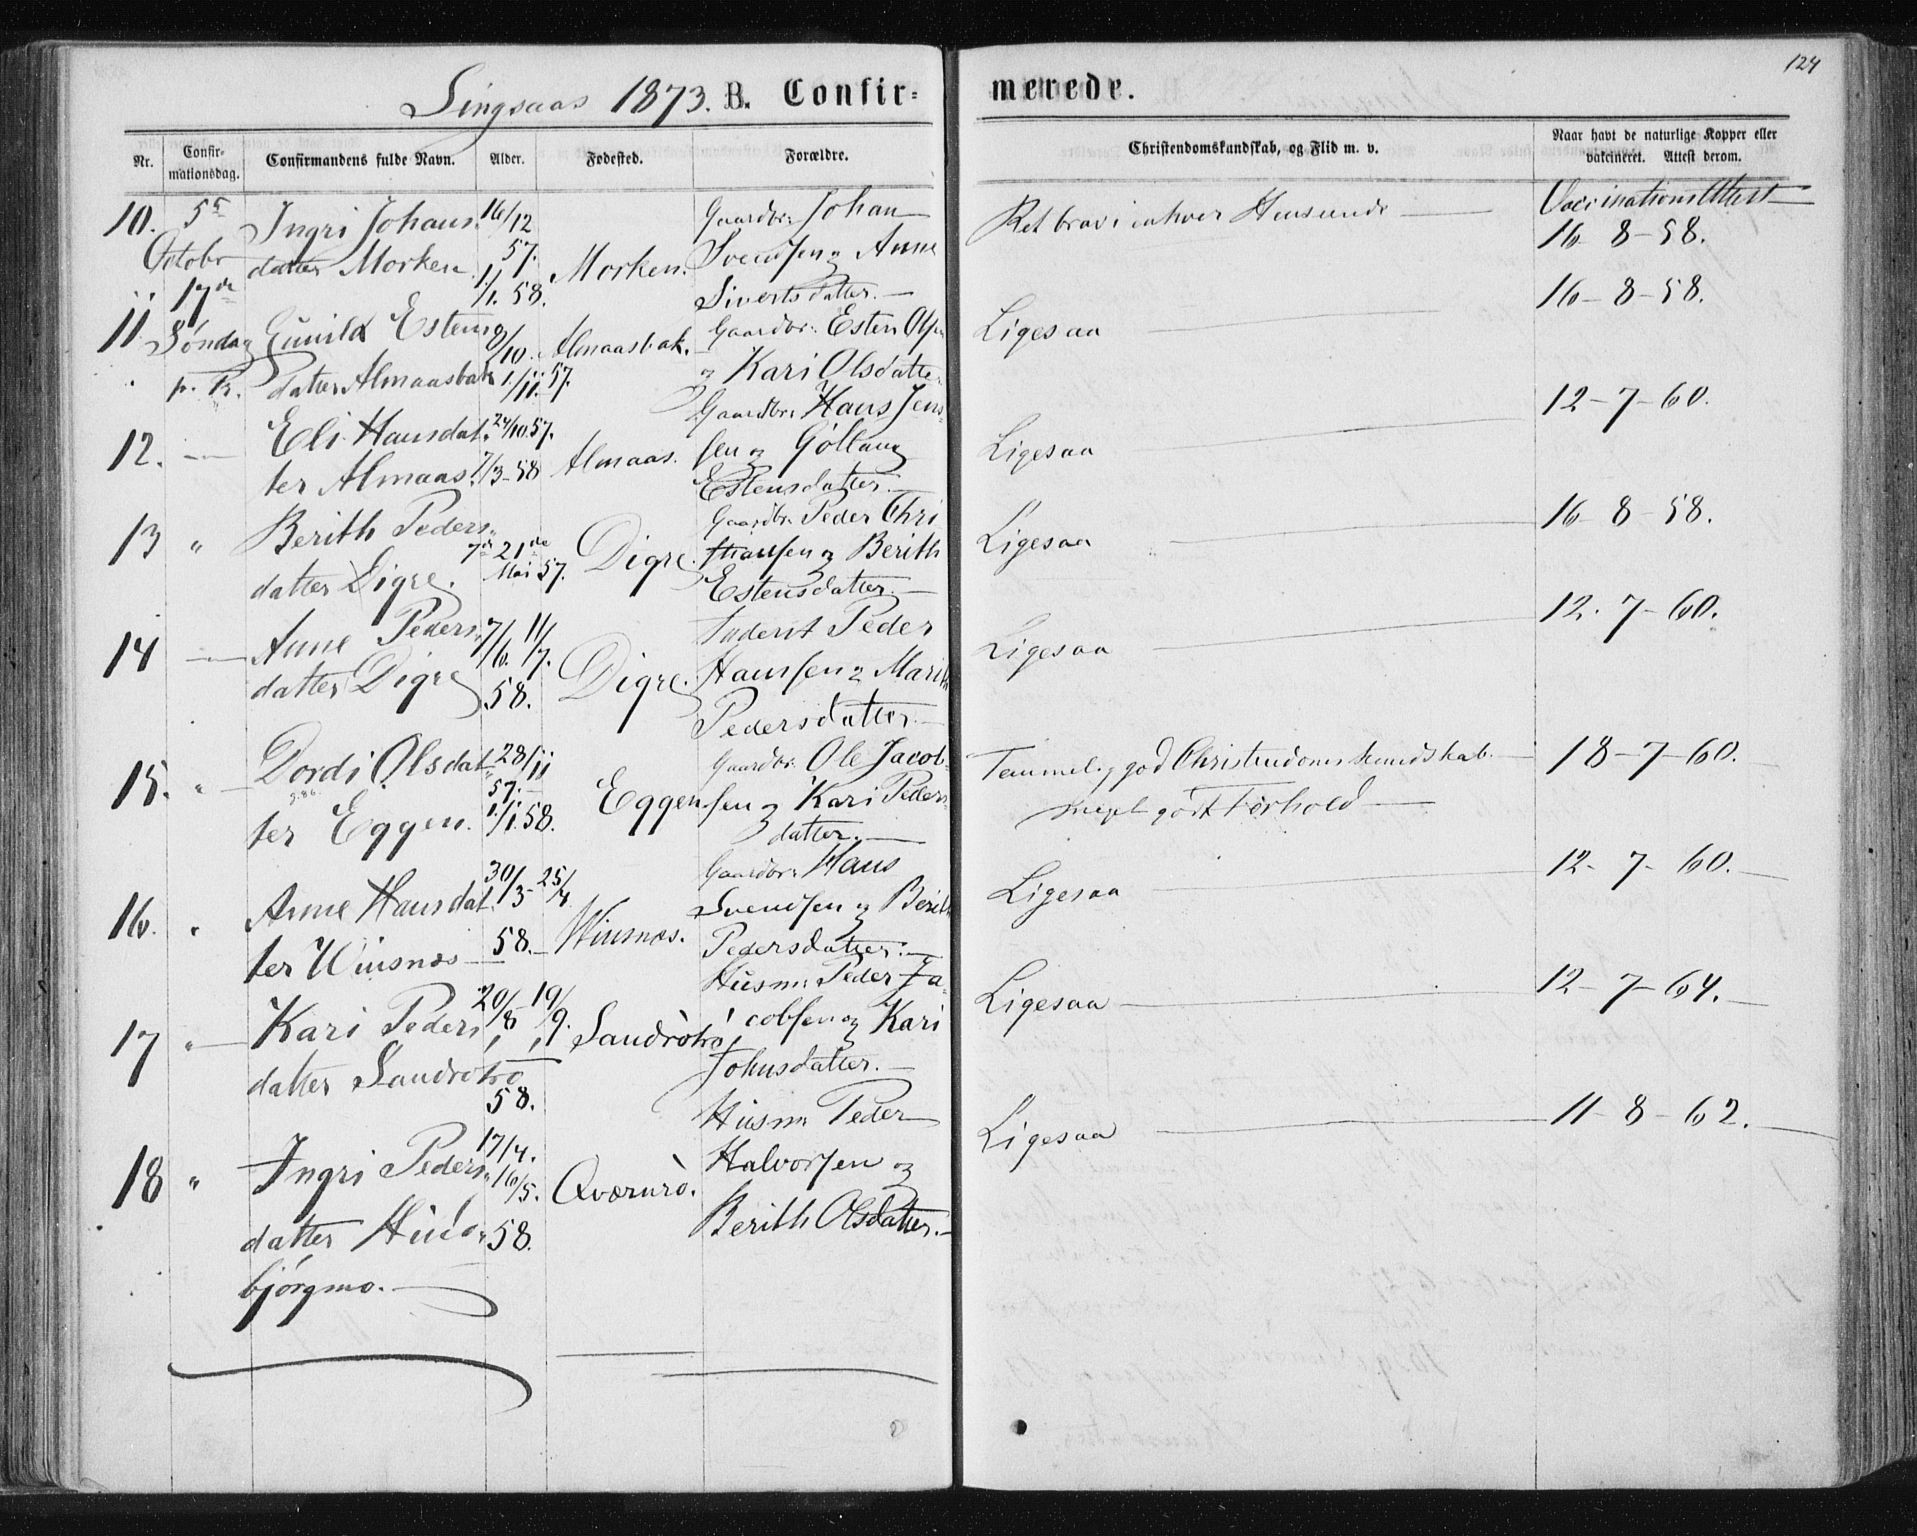 124
Singsaas 1873. B. Confir=
merede.
Nr.
Confir-
mationsdag.
Confirmandens fulde Navn.
Alder.
Fødested.
Forældre.
Christendomskundskab, og Flid m. v.
Naar havt de naturlige Kopper eller
vakcineret. Attest derom.
10.
5te
Octobr
17de
Søndag
p. Tr.
Ingri Johans-
datter Morken
16/12
57.
1/1. 58.
Morken.
Gaardbr: Johan
Svendsen og Anne
Sivertsdatter.
Ret brav i enhver Henseende
Vaccinationsattest
16-8-58.
11.
Gunild Estens
datter Almaasbak
/10.
1/11. 57.
Almaasbak.
Gaardbr: Esten Olsen
og Kari Olsdatter
Ligesaa
16-8-58.
12.
Eli Hansdat-
ter Almaas.
24/10 57.
7/3-58
Almaas.
Gaardbr: Hans Jen-
sen og Gollaug
Estensdatter.
Ligesaa
12-7-60.
13 "
Berith Peders-
datter Digre.
7de 21de
Mai 57.
Digre.
Gaardbr: Peder Chri
stiansen og Berith
Estensdatter.
Ligesaa
16-8-58.
14
Anne Peders-
datter Digre
7/6. 11/7.
58.
Digre.
Inderst Peder
Hansen og Marith
Pedersdatter.
Ligesaa
12-7-60.
15. "
Dordi Olsdat-
ter Eggen.
28/11
57.
1/1. 58.
Eggen
Gaardbr. Ole Jacob-
sen og Kari Peders
datter.
Temmelig god Christendomskundskab
meget godt Forhold
18-7-60.
16. "
Anne Hansdat
ter Winsnes
30/3- 25/4
58.
Winsnes.
Gaardbr: Hans
Svendsen og Berith
Pedersdatter.
Ligesaa
12-7-60.
17 "
Kari Peders
datter Sandrøtrø
20/8 19/9.
58.
Sandrøtrø
Husm: Peder Ja-
cobsen og Kari
Johnsdatter.
Ligesaa
12-7-64.
18 "
Ingri Peders-
datter Hindbjørgmo.
17/4.
16/5.
58.
Qværnrø.
Husm: Peder
Halvorsen og
Berith Olsdatter.
Ligesaa
11-8-62.